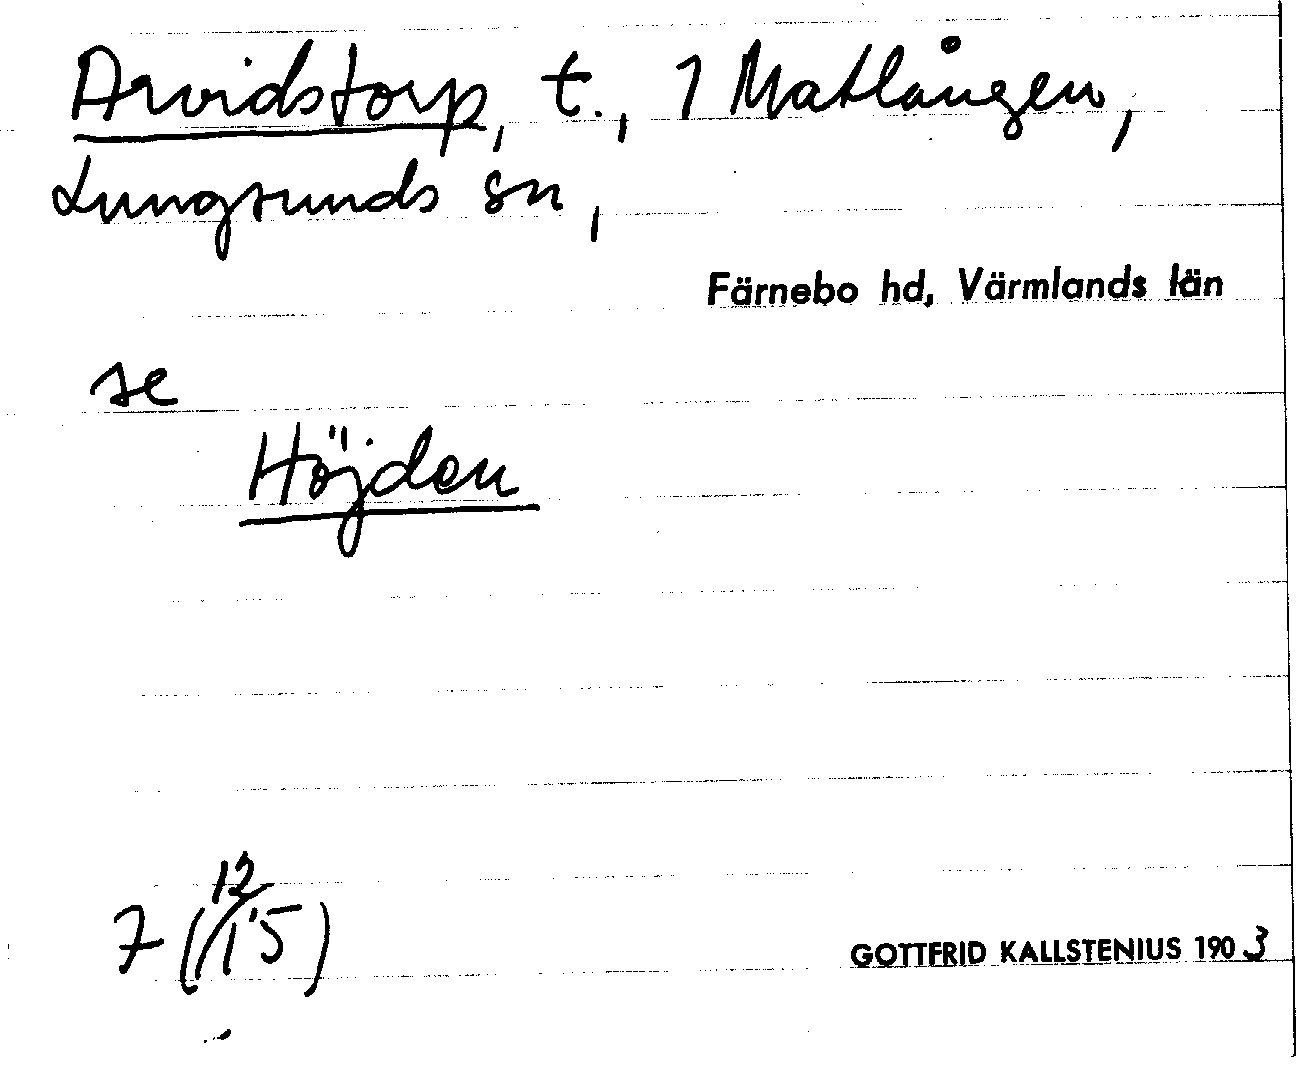 Arvidstorp, t., 1 Matlången,
Lungsunds sn,
Färnebo hd, Värmlands län
se
Höjden
7 (12/15)
GOTTFRID KALLSTENIUS 1903